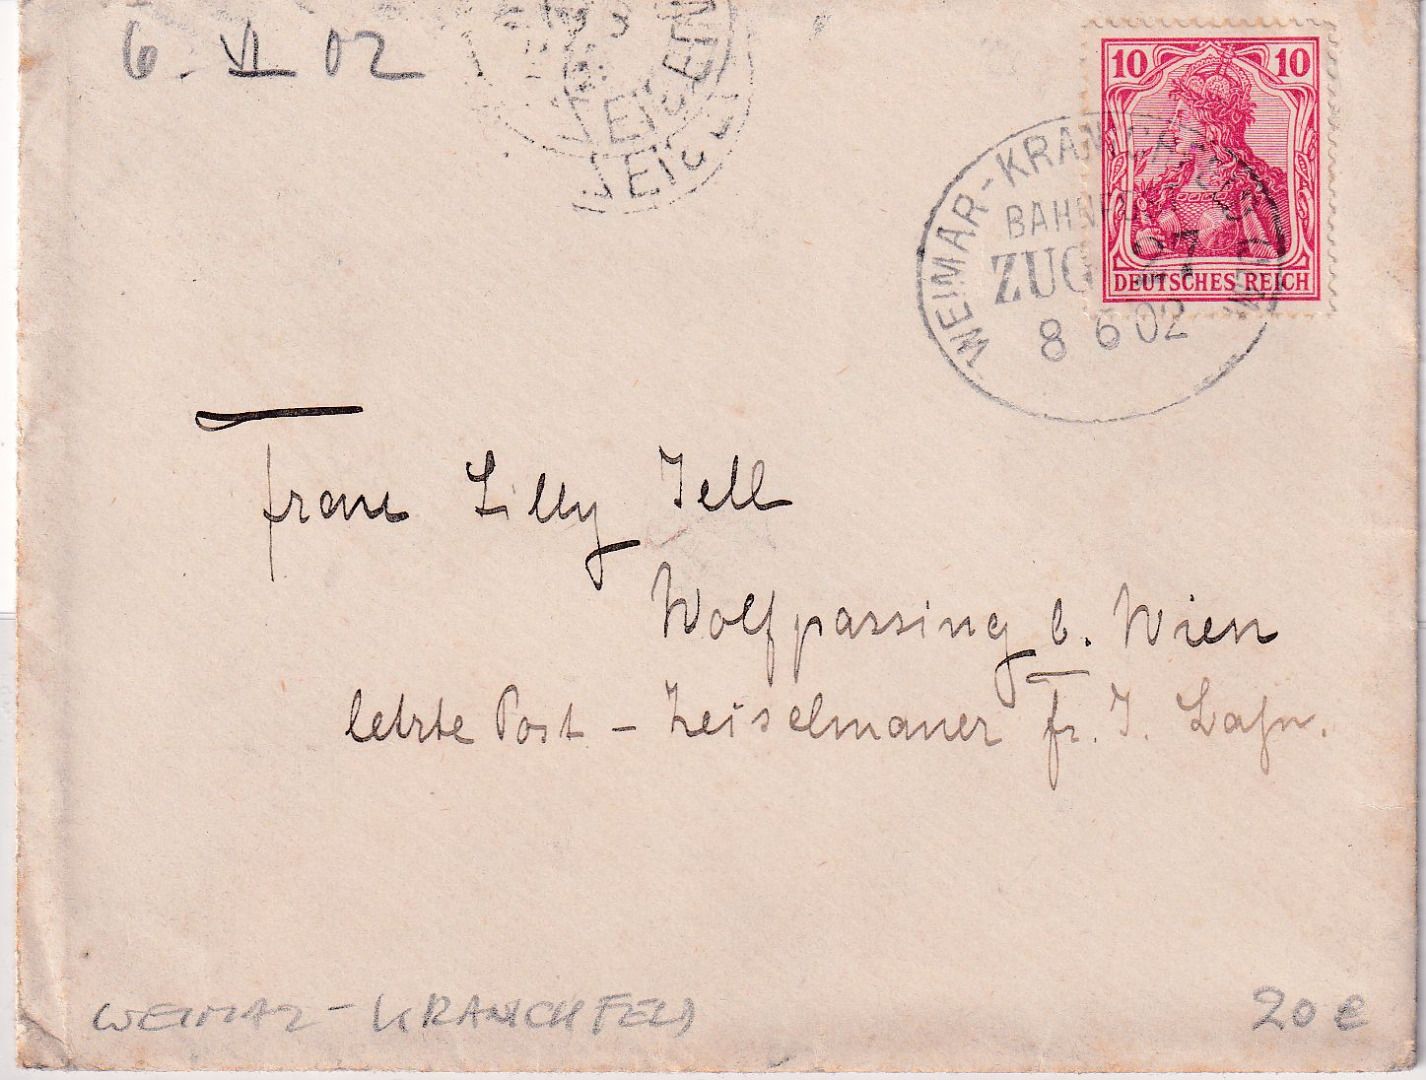 6. VI 02
10 10
DEUTSCHES REICH
WEIMAR-KRANICHFELD
BAHNPOST
ZUG 27
8 6 02
Frau Lilly Jell
Wolfpassing b. Wien
letzte Post - Zeiselmauer fr. J. Bahn.
WEIMAR-KRANICHFELD
20 €